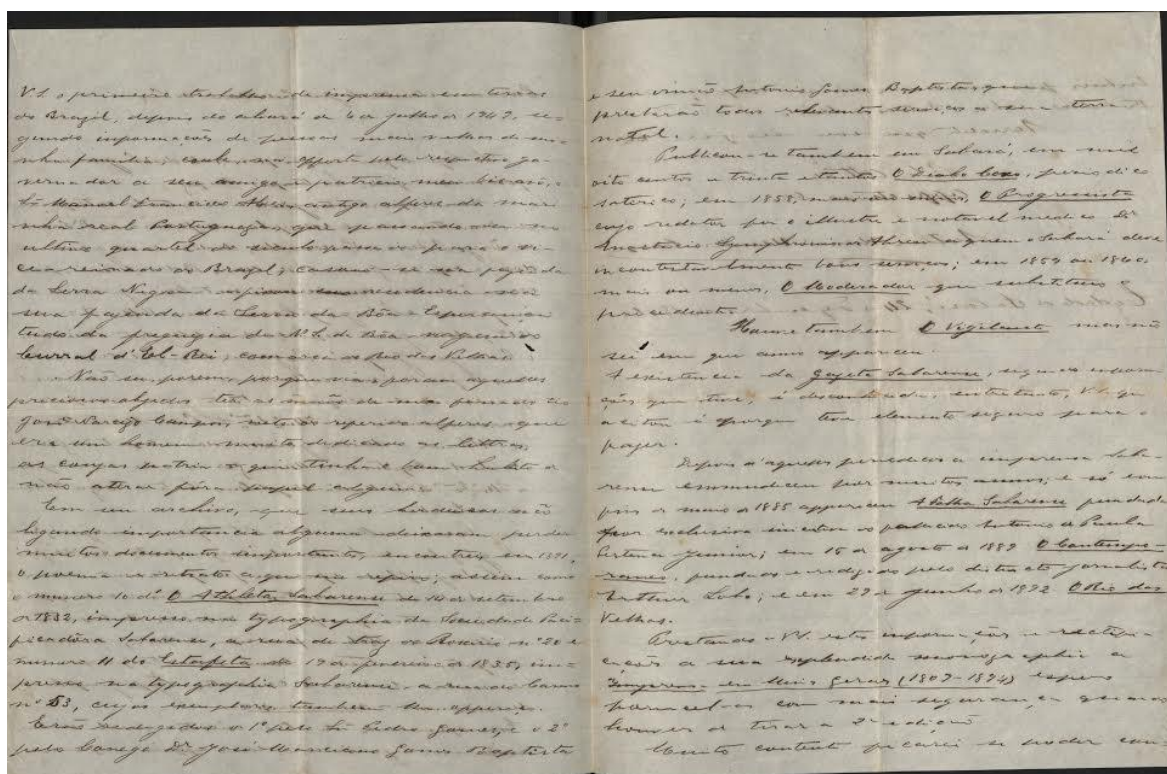 V. S. o primeiro trabalho de imprensa em terras
do Brazil, depois do alvará de 6 de julho de 1747, se-
gundo informações de pessoas mais velhas de mi-
nha familia, coube, por offerta pelo respectivo go-
vernador a seu amigo e patricio meu bisavô,
Sr. Manoel Francisco antigo alferes da mari-
nha real Portugueza, que passando-se no
ultimo quartel do seculo passado para o vi-
ce-reinado do Brazil, casou-se na fazenda
da Serra Negra
sua fazenda da Serra da Bôa-Esperança
tudo da freguezia de N. S. da Bôa-
Curral d'El-Rei, comarca do Rio das Velhas.
Não sei, porem, porque vias foram aquelles
preciosos objectos ter ás mãos de meu finado tio
José Campos, neto do referido alferes, que
era um homem muito dedicado ás lettras,
ás cousas patrias e que tinha o bom habito de
não atirar fóra papel algum.
Em seu archivo, que seus herdeiros não
ligando importancia alguma deixaram perder
muitos documentos importantes, encontrei, em 1891,
o poema e o retrato a que me refiro; assim como
o numero 10 d' O Athleta Sabarense de 14 de setembro
de 1832, impresso na typographia da Sociedade Paci-
ficadôra Sabarense, á rua de traz do Rosario nº 20 e
numero 11 do Estafeta de 19 de fevereiro de 1835, im-
presso na typographia Sabarense, á rua do Carmo
nº 53, cujos exemplares tambem lhe offereço.
Erão redigidos o 1º pelo Sr. Pedro Gomes, e o 2º
pelo Conego Dr. José Marciano Gomes Baptista
e seu irmão Antonio Gomes Baptista, que
prestarão todos relevantes serviços a sua terra
natal.
Publicou-se tambem em Sabará, em mil
oito centos e trinta e tantos O Diabo Coxo, periodico
satyrico; em 1858, O Progressista
cujo redator foi o illustre e notavel medico Dr.
Anastacio Symphronio de Abreu a quem o Sabará deve
incontestavelmente bons serviços; em 1859 ou 1860,
mais ou menos, O Moderador que substituiu o
precedente.
Houve tambem O Vigilante mas não
sei em que anno appareceu.
A existencia da Gazeta Sabarense, segundo informa-
ções que tive, é desconhecida, entretanto, V. S. que
a citou é porque tem elemento seguro para o
fazer.
Depois d'aquelles periodicos a imprensa Saba-
rense emmudeceu por muitos annos, e só em
fins de maio de 1885 appareceu A Folha Sabarense fundada
por exclusiva iniciativa do Antonio de Paula
Pertence Junior; em 15 de agosto de 1889 O Contempo-
raneo, fundado e redigido pelo distincto jornalista
Arthur Lobo; e em 29 de junho de 1892 O Rio das
Velhas.
Prestando a V. S. estas informações e rectifi-
cações á sua esplendida monographia a
Imprensa em Minas Geraes (1807-1894) espero
fornecel-as com mais segurança quando
houver de tirar a 2ª edição.
Muito contente ficarei se poder con-